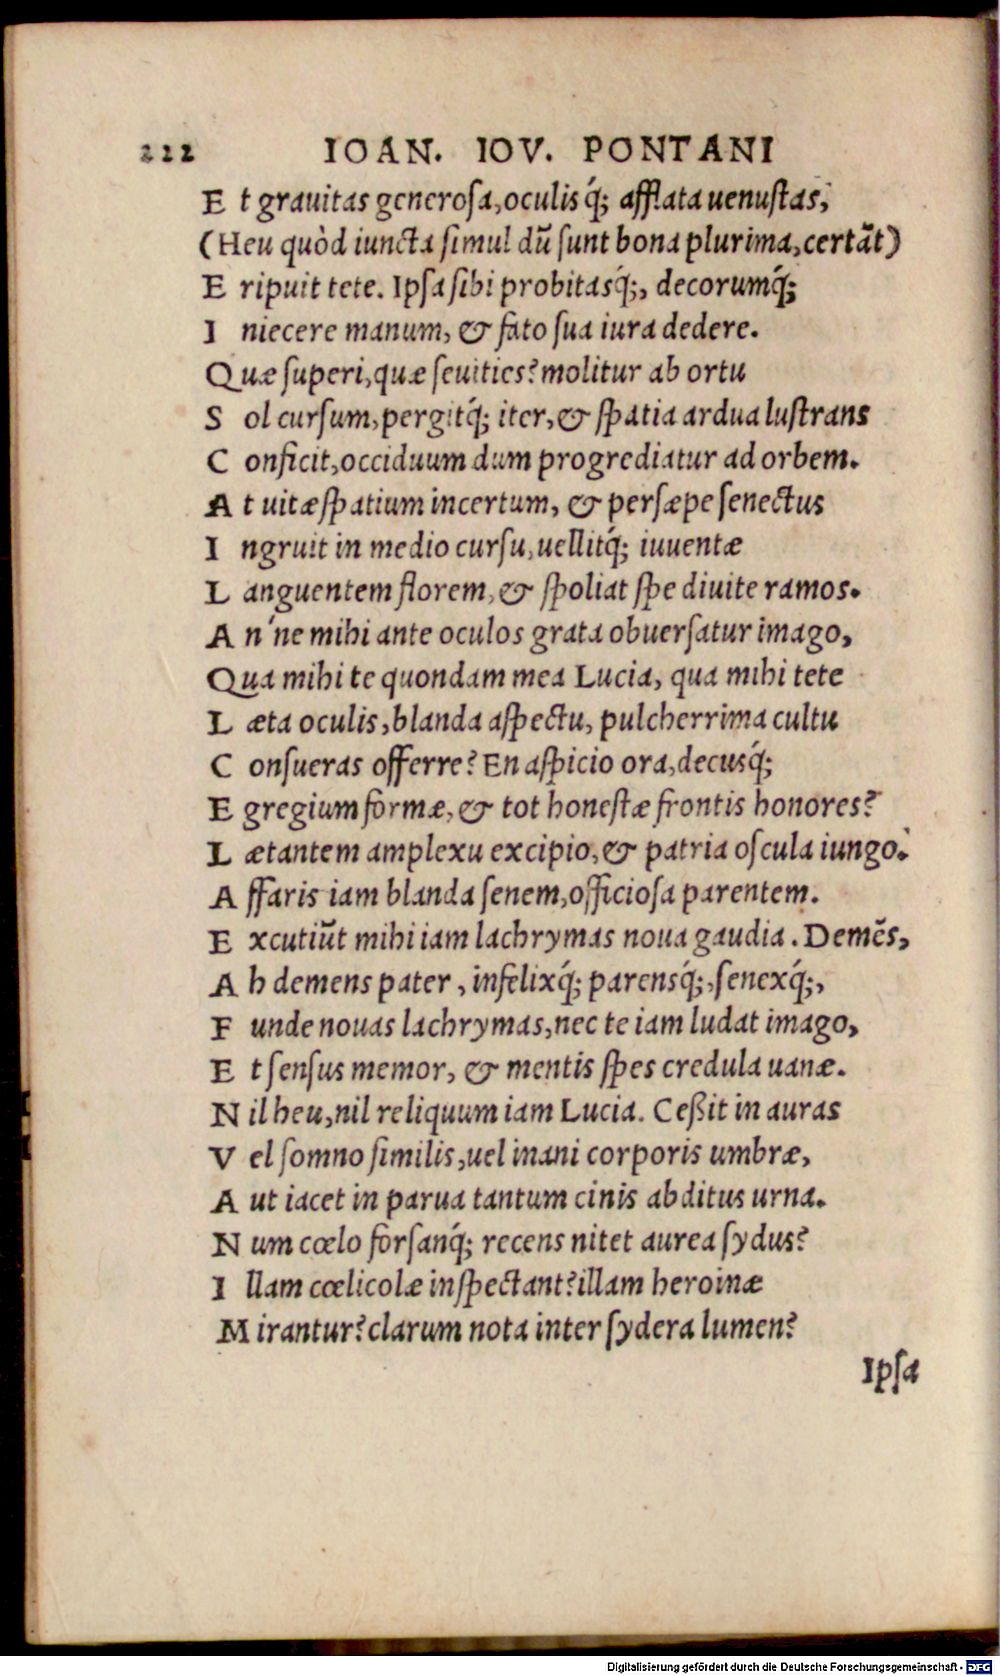 222 IOAN. IOV. PONTANI
E t grauitas generosa, oculisq́; afflata uenustas,
(Heu quòd iuncta simul dū sunt bona plurima, certāt)
E ripuit tete. Ipsa sibi probitasq́;, decorumq́;
I niecere manum, & fato sua iura dedere.
Quæ superi, quæ seuities? molitur ab ortu
S ol cursum, pergitq́; iter, & spatia ardua lustrans
C onficit, occiduum dum progrediatur ad orbem.
A t uitæ spatium incertum, & persæpe senectus
I ngruit in medio cursu, uellitq́; iuuentæ
L anguentem florem, & spoliat spe diuite ramos.
A n'ne mihi ante oculos grata obuersatur imago,
Qua mihi te quondam mea Lucia, qua mihi tete
L æta oculis, blanda aspectu, pulcherrima cultu
C onsueras offerre? En aspicio ora, decusq́;
E gregium formæ, & tot honestæ frontis honores?
L ætantem amplexu excipio, & patria oscula iungo.
A ffaris iam blanda senem, officiosa parentem.
E xcutiūt mihi iam lachrymas noua gaudia. Demēs,
A h demens pater, infelixq́; parensq́;, senexq́;,
F unde nouas lachrymas, nec te iam ludat imago,
E t sensus memor, & mentis spes credula uanæ.
N il heu, nil reliquum iam Lucia. Ceßit in auras
V el somno similis, uel inani corporis umbræ,
A ut iacet in parua tantum cinis abditus urna.
N um cœlo forsanq́; recens nitet aurea sydus?
I llam cœlicolæ inspectant? illam heroinæ
M irantur? clarum nota inter sydera lumen?
Ipsa
Digitalisierung gefördert durch die Deutsche Forschungsgemeinschaft - DFG